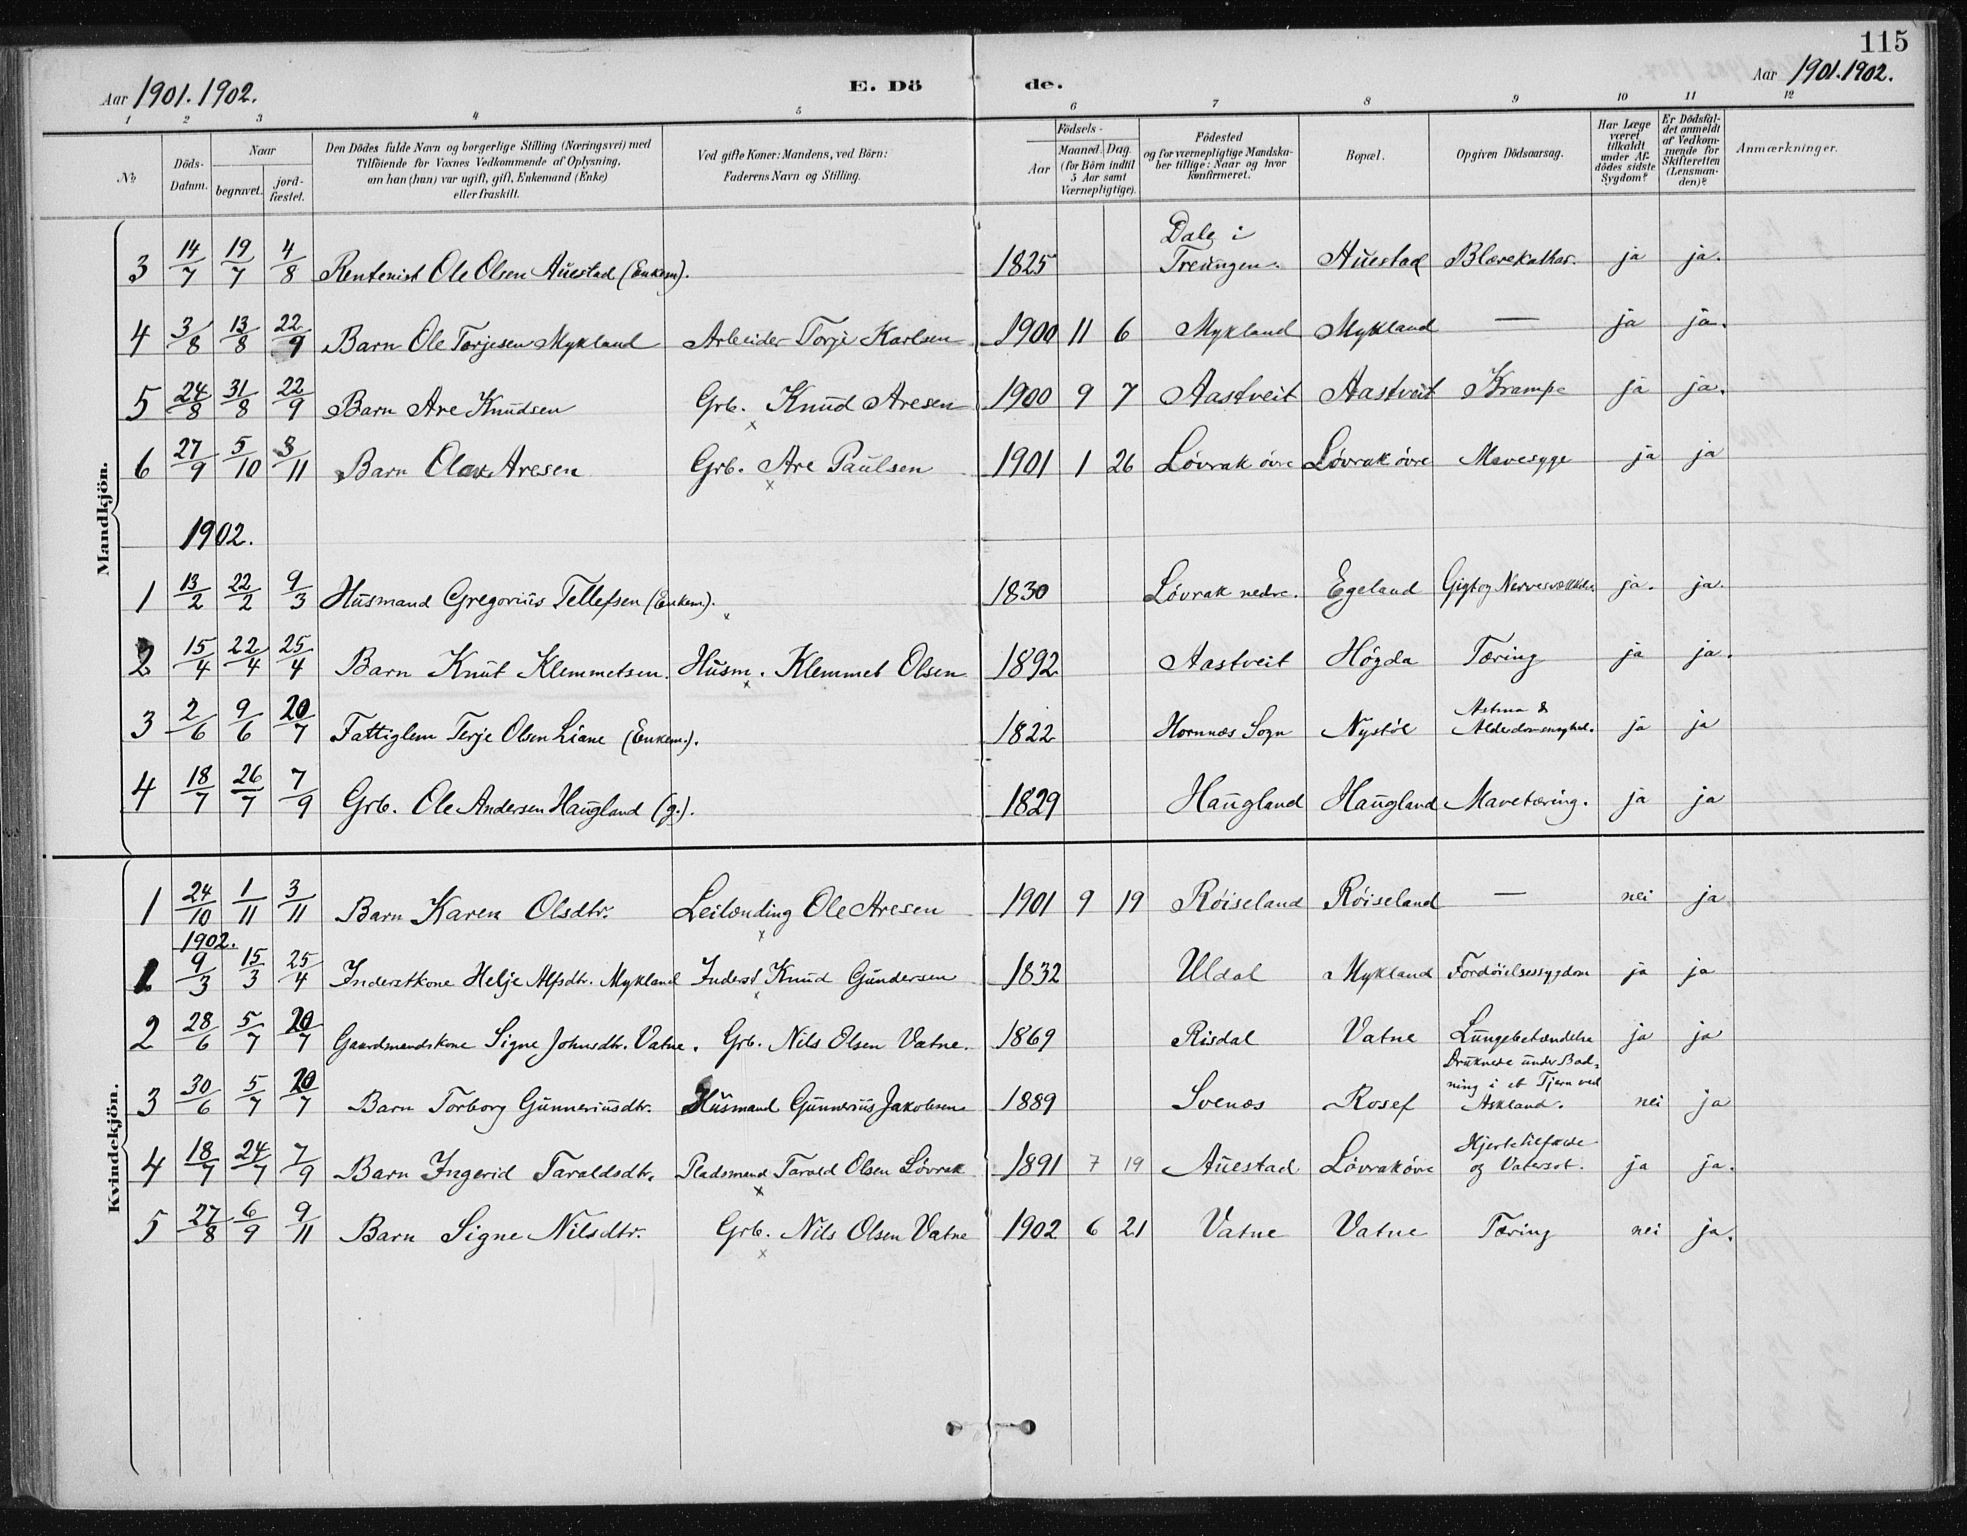 115
Aar 1901. 1902. E. Dö de. Aar 1901. 1902.
1 2 3 4 5 6 7 8 9 10 11 12
№ Döds-Datum. Naar begravet. jord-fæstet. Den Dödes fulde Navn og borgerlige Stilling (Næringsvei) med Tilföiende for Voxnes Vedkommende af Oplysning, om han (hun) var ugift, gift, Enkemand (Enke) eller fraskilt. Ved gifte Koner: Mandens, ved Börn: Faderens Navn og Stilling. Födsels- Aar Maaned. Dag. (for Börn indtil 5 Aar samt Værnepligtige). Födested og for værnepligtige Mandskaber tillige: Naar og hvor konfirmeret. Bopæl. Opgiven Dödsaarsag. Har Læge været tilkaldt under Afdödes sidste Sygdom? Er Dödsfaldet anmeldt af Vedkommende for Skifteretten (Lensmanden)? Anmærkninger.
Mandkjön.
3 14/7 19/7 4/8 Rentenist Ole Olsen Auestad (Enkem). 1825 Dale i Treungen. Auestad Blærekathar. ja ja.
4 3/8 13/8 22/9 Barn Ole Torjesen Mykland Arbeider Torje Karlsen 1900 11 6 Mykland Mykland — ja ja.
5 24/8 31/8 22/9 Barn Are Knudsen Grb. Knud Aresen 1900 9 7 Aastveit Aastveit Krampe ja ja.
6 27/9 5/10 3/11 Barn Olav Aresen Grb. Are Paulsen 1901 1 26 Lövrak övre Lövrak övre Mavesyge ja ja
1902.
1 13/2 22/2 9/3 Husmand Gregorius Tellefsen (Enkem). 1830 Lövrak nedre. Egeland Gigt og ja. ja.
2 15/4 22/4 25/4 Barn Knut Klemmetsen. Husm. Klemmet Olsen 1892 Aastveit Högda Tæring ja ja.
3 2/6 9/6 20/7 Fattiglem Terje Olsen Liane (Enkem.). 1822 Hornnæs Sogn Nystöl Astma & ja ja
4 18/7 26/7 7/9 Grb. Ole Andersen Haugland (g.). 1829 Haugland Haugland Mavetæring. ja ja
Kvindekjön.
1 24/10 1/11 3/11 Barn Karen Olsdtr. Leilænding Ole Aresen 1901 9 19 Röiseland Röiseland — nei ja
1902.
1 9/3 15/3 25/4 Inderstkone Helje Alfsdtr. Mykland Inderst Knud Gundersen 1832 Uldal Mykland Fordöielsessygdom ja ja
2 28/6 5/7 20/7 Gaardmandskone Signe Johnsdtr. Vatne. Grb. Nils Olsen Vatne. 1869 Risdal Vatne Lungebetændelse ja ja
3 30/6 5/7 20/7 Barn Torborg Gunneriusdtr. Husmand Gunnerius Jakobsen 1889 Svenæs Rosef Druknede under Badning i et Tjern ved Askland. nei ja
4 18/7 24/7 7/9 Barn Ingerid Taraldsdtr. Pladsmand Tarald Olsen Lövrak 1891 7 19 Auestad Lövrak övre Hjertelidelse og Vatersot. ja ja.
5 27/8 6/9 9/11 Barn Signe Nilsdtr. Grb. Nils Olsen Vatne 1902 6 21 Vatne Vatne Tæring nei ja.